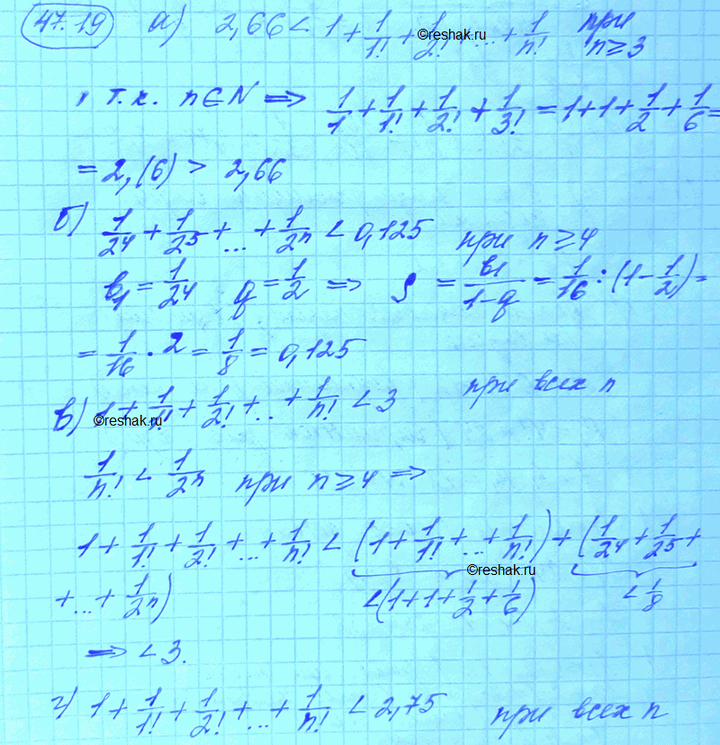 47.19 а) 2,66 < 1 + 1/1! + 1/2! + ... + 1/n! при n ≥ 3
©reshak.ru
, т.к. n ∈ N ⇒ 1/1 + 1/1! + 1/2! + 1/3! = 1 + 1 + 1/2 + 1/6 =
= 2,(6) > 2,66
б) 1/24 + 1/25 + ... + 1/2n < 0,125 при n ≥ 4
b1 = 1/24 q = 1/2 ⇒ S = b1/1-q = 1/16 : (1 - 1/2) =
= 1/16 · 2 = 1/8 = 0,125
в) 1 + 1/1! + 1/2! + ... + 1/n! < 3 при всех n
©reshak.ru
1/n! < 1/2n при n ≥ 4 ⇒
1 + 1/1! + 1/2! + ... + 1/n! < (1 + 1/1! + ... + 1/n!) + (1/24 + 1/25 +
©reshak.ru
+ ... + 1/2n) <(1 + 1 + 1/2 + 1/6) < 1/8
⇒ < 3.
г) 1 + 1/1! + 1/2! + ... + 1/n! < 2,75 при всех n